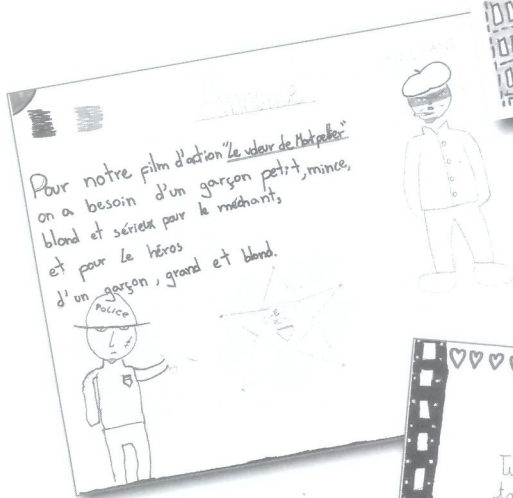 Annonce
Pour notre film d'action "Le voleur de Montpellier"
on a besoin d'un garçon petit, mince,
blond et sérieux pour le méchant,
et pour le héros
d'un garçon, grand et blond.
POLICE
Tu